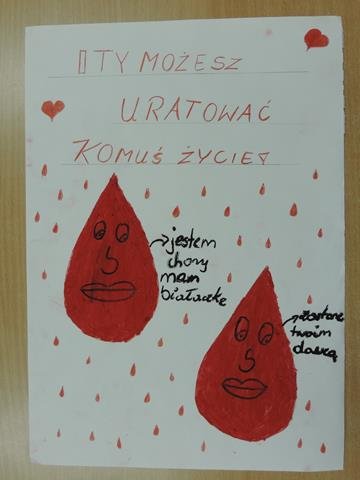 I TY MOŻESZ
URATOWAĆ
KOMUŚ ŻYCIE
jestem
chory
mam
białaczkę
zostanę
twoim
dawcą